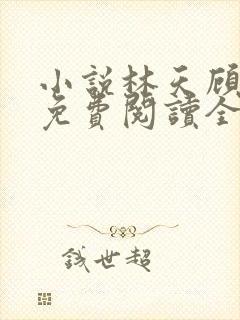 小說林天顧
免費閱讀全
錢世超